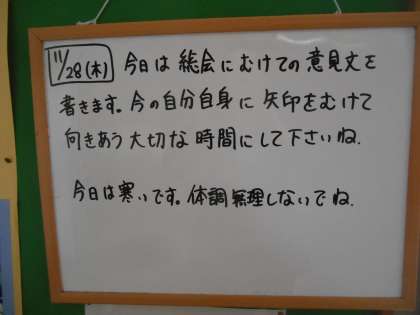 11/28(木) 今日は総会にむけての意見文を
書きます。今の自分自身に矢印をむけて
向きあう大切な時間にして下さいね.
今日は寒いです。体調無理しないでね.